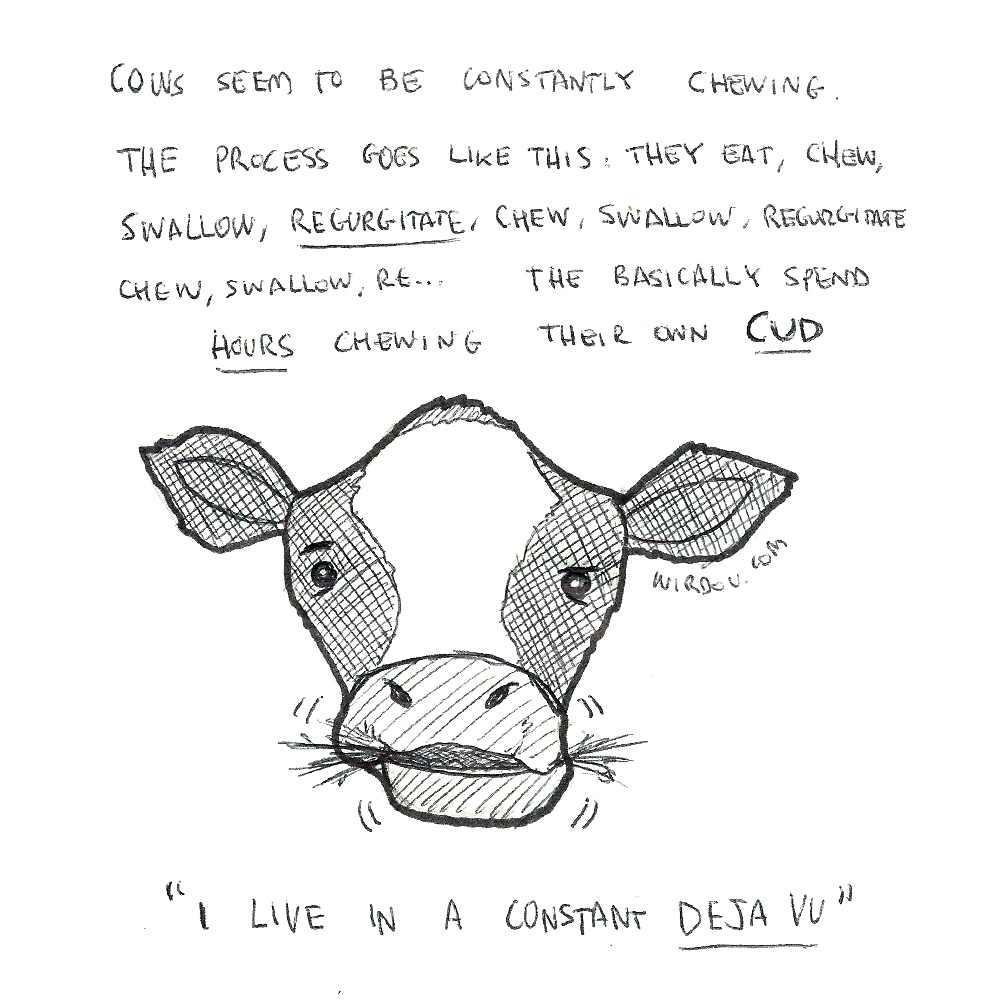 COWS SEEM TO BE CONSTANTLY CHEWING.
THE PROCESS GOES LIKE THIS: THEY EAT, CHEW,
SWALLOW, REGURGITATE, CHEW, SWALLOW, REGURGITATE
CHEW, SWALLOW, RE... THE BASICALLY SPEND
HOURS CHEWING THEIR OWN CUD
WIRDOU.COM
"I LIVE IN A CONSTANT DEJA VU"